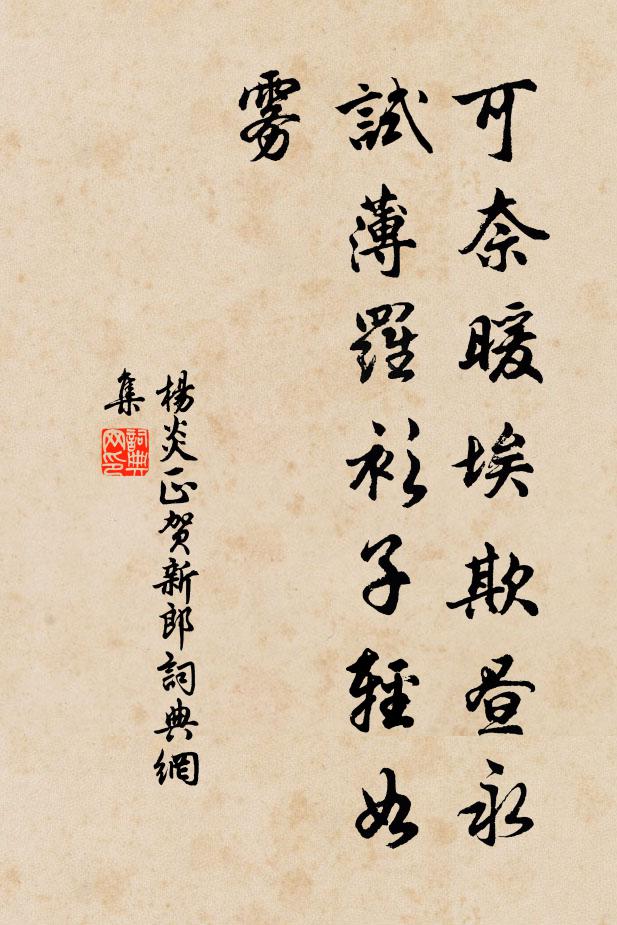 可奈暖埃欺昼永
試薄羅衫子輕如
雾
楊炎正贺新郎詞典網
集
詞典网印